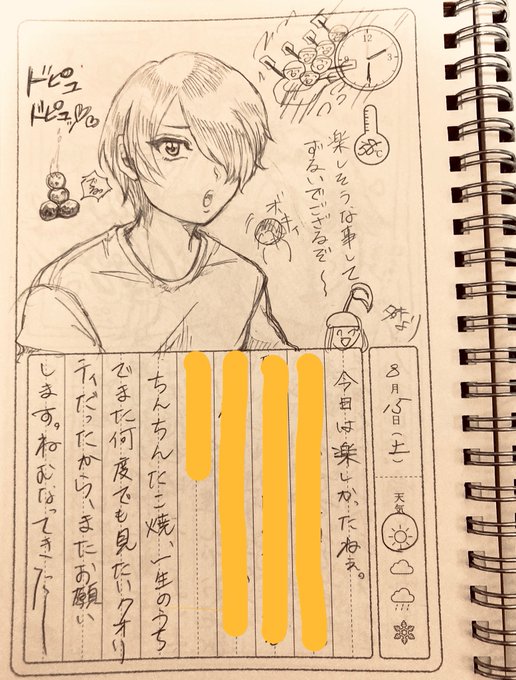 ドピュ
ドピュッ♡
12
3
6
38℃
楽しそうな事して
ずるいでござるぞ〜
より
8月15日(土)
天気
今日は楽しかったねぇ。
ちんちんたこ焼、一生のうち
でまた何度でも見たいクオリ
ティだったから、またお願い
します。ねむなってきた〜